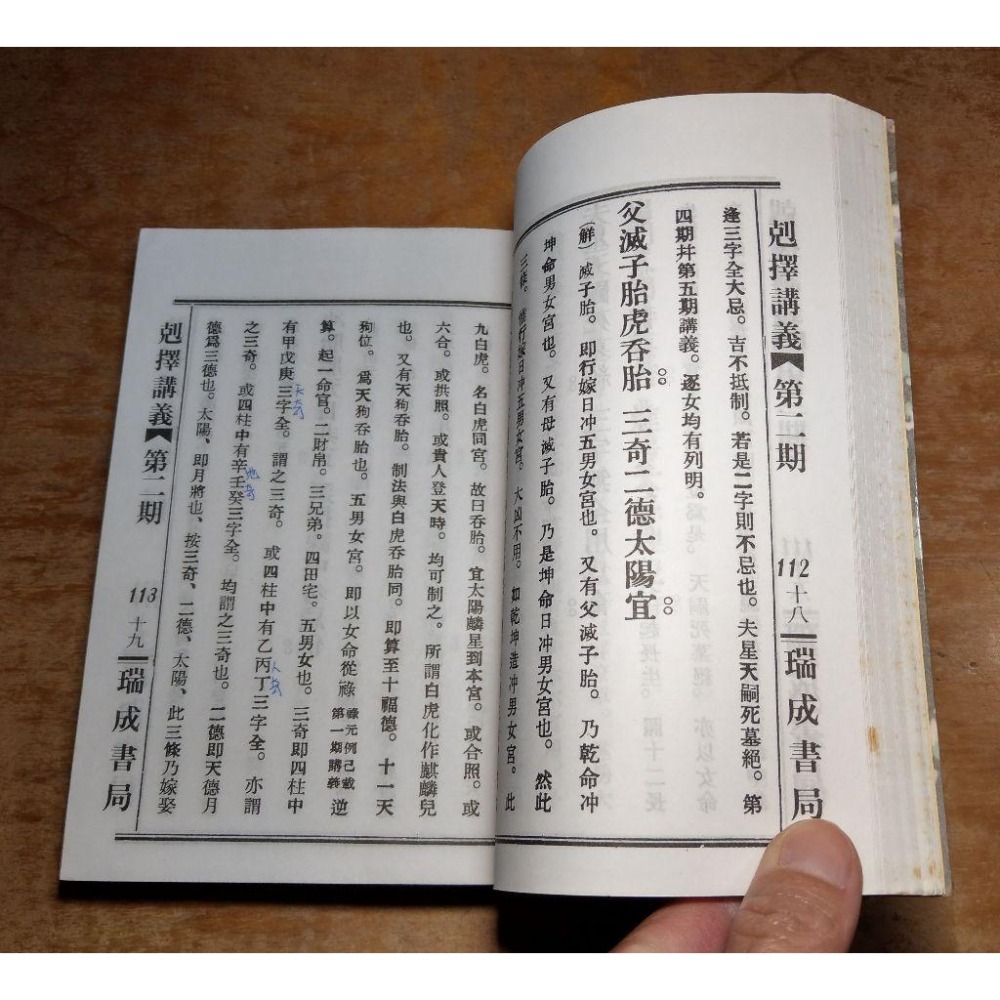 剋擇講義【第二期　112 十八 瑞成書局
逢三字全大忌。吉不抵制。若是二字則不忌也。夫星天嗣死墓絕。第
四期幷第五期講義。逐女均有列明。
父滅子胎虎吞胎 三奇二德太陽宜
(解) 滅子胎。即行嫁日冲五男女宮也。又有父滅子胎。乃乾命冲
坤命男女宮也。又有母滅子胎。乃是坤命日冲男女宮也。然此
三條。惟行嫁日冲五男女宮。大凶不用。如乾坤造冲男女宮。此
九白虎。名白虎同宮。故曰吞胎。宜太陽麟星到本宮。或合照。或
六合。或拱照。或貴人登天時。均可制之。所謂白虎化作麒麟兒
也。又有天狗吞胎。制法與白虎吞胎同。即算至十福德。十一天
狗位。爲天狗吞胎也。五男女宮。即以女命從祿祿元例己載第一期講義逆
算。起一命官。二財帛。三兄弟。四田宅。五男女也。三奇即四柱中
有甲戊庚三字全。謂之三奇。或四柱中有乙丙丁三字全。亦謂
天奇
人奇
之三奇。或四柱中有辛壬癸三字全。均謂之三奇也。二德即天德月
地奇
德爲三德也。太陽、即月將也、按三奇、二德、太陽、此三條乃嫁娶
剋擇講義【第二期　113 十九 瑞成書局